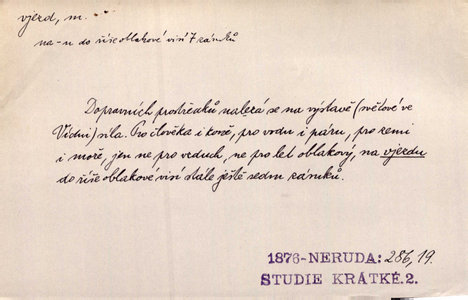 vjezd, m.
na-u do říše oblakové visí 7 zámků
Dopravních prostředků nalezá se na výstavě (světové ve
Vídni) síla. Pro člověka i koně, pro vodu i páru, pro zemi
i moře, jen ne pro vzduch, ne pro let oblakový, na vjezdu
do říše oblakové visí stále ještě sedm zámků.
1876-NERUDA: 286,19.
STUDIE KRÁTKÉ.2.